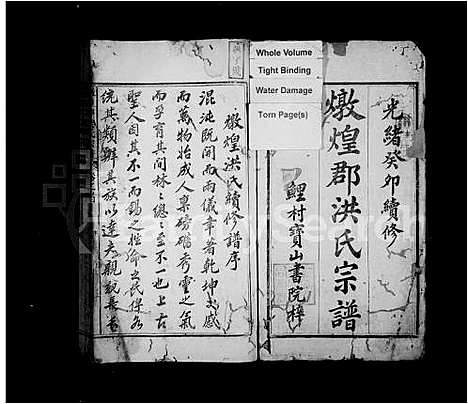 Whole Volume
Tight Binding
Water Damage
Torn Page(s)
光緒癸卯續修
燉煌郡洪氏宗譜
鯉村寶山書院梓
燉煌洪氏續修譜序
混沌既開而兩儀肇著乾坤交感
而萬物始成人稟磅礴秀靈之氣
而孕育其間林林總總之至不一也上古
聖人因其不一而錫之姓俾生民得各
統其類辨其族以達夫親親長長